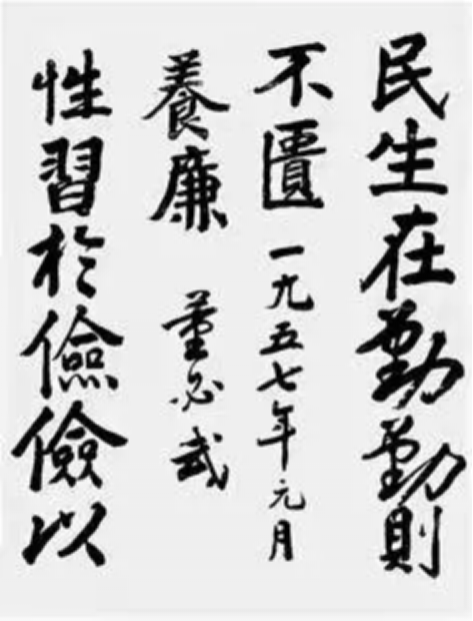 民生在勤勤則
不匱 一九五七年元月
性習於儉儉以
養廉 董必武